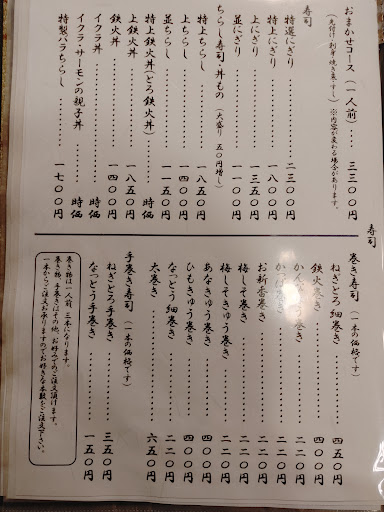 おまかせコース(一人前)……三三〇〇円
(先付け・刺身・焼き魚・すし)※内容が変わる場合があります。
寿司
特選にぎり……二三〇〇円
特上にぎり……一八〇〇円
上にぎり……一三五〇円
並にぎり……一一〇〇円
ちらし寿司・丼もの(大盛り五〇円増し)
特上ちらし……一八五〇円
上ちらし……一四〇〇円
並ちらし……一一五〇円
特上鉄火丼(とろ鉄火丼)……時価
上鉄火丼……一八五〇円
鉄火丼……一四〇〇円
イクラ丼……時価
イクラ・サーモンの親子丼……時価
特製バラちらし……一七〇〇円
寿司
巻き寿司(一本の価格です)
ねぎとろ細巻き……四五〇円
鉄火巻き……四〇〇円
かんぴょう巻き……二二〇円
かっぱ巻き……二二〇円
お新香巻き……二二〇円
梅しそ巻き……二二〇円
梅しそきゅう巻き……二二〇円
あなきゅう巻き……四〇〇円
ひもきゅう巻き……四〇〇円
なっとう細巻き……二二〇円
太巻き……六五〇円
手巻き寿司(一本の価格です)
ねぎとろ手巻き……三五〇円
なっとう手巻き……一五〇円
巻き物は一人前、三本になります。
巻き物、手巻きはその他、お好みでのご注文頂けます。
一本からご注文お承りますのでお好きな本数をご注文下さい。